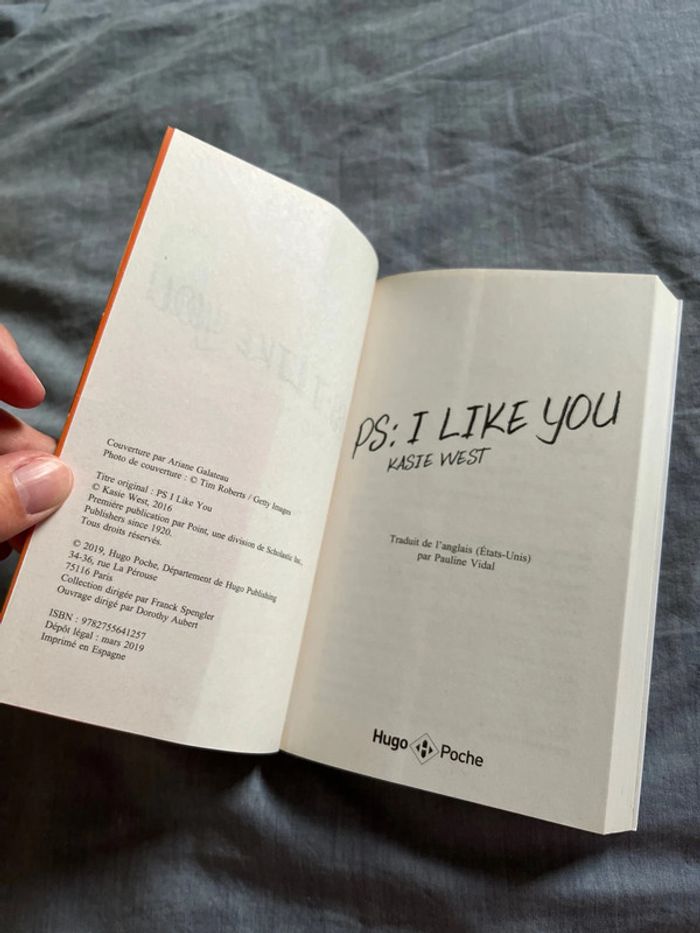 Couverture par Ariane Galateau
Photo de couverture : © Tim Roberts / Getty Images
Titre original : PS I Like You
© Kasie West, 2016
Première publication par Point, une division de Scholastic Inc.,
Publishers since 1920.
Tous droits réservés.
© 2019, Hugo Poche, Département de Hugo Publishing
34-36, rue La Pérouse
75116 Paris
Collection dirigée par Franck Spengler
Ouvrage dirigé par Dorothy Aubert
ISBN : 9782755641257
Dépôt légal : mars 2019
Imprimé en Espagne
PS: I LIKE YOU
KASIE WEST
Traduit de l'anglais (États-Unis)
par Pauline Vidal
Hugo Poche